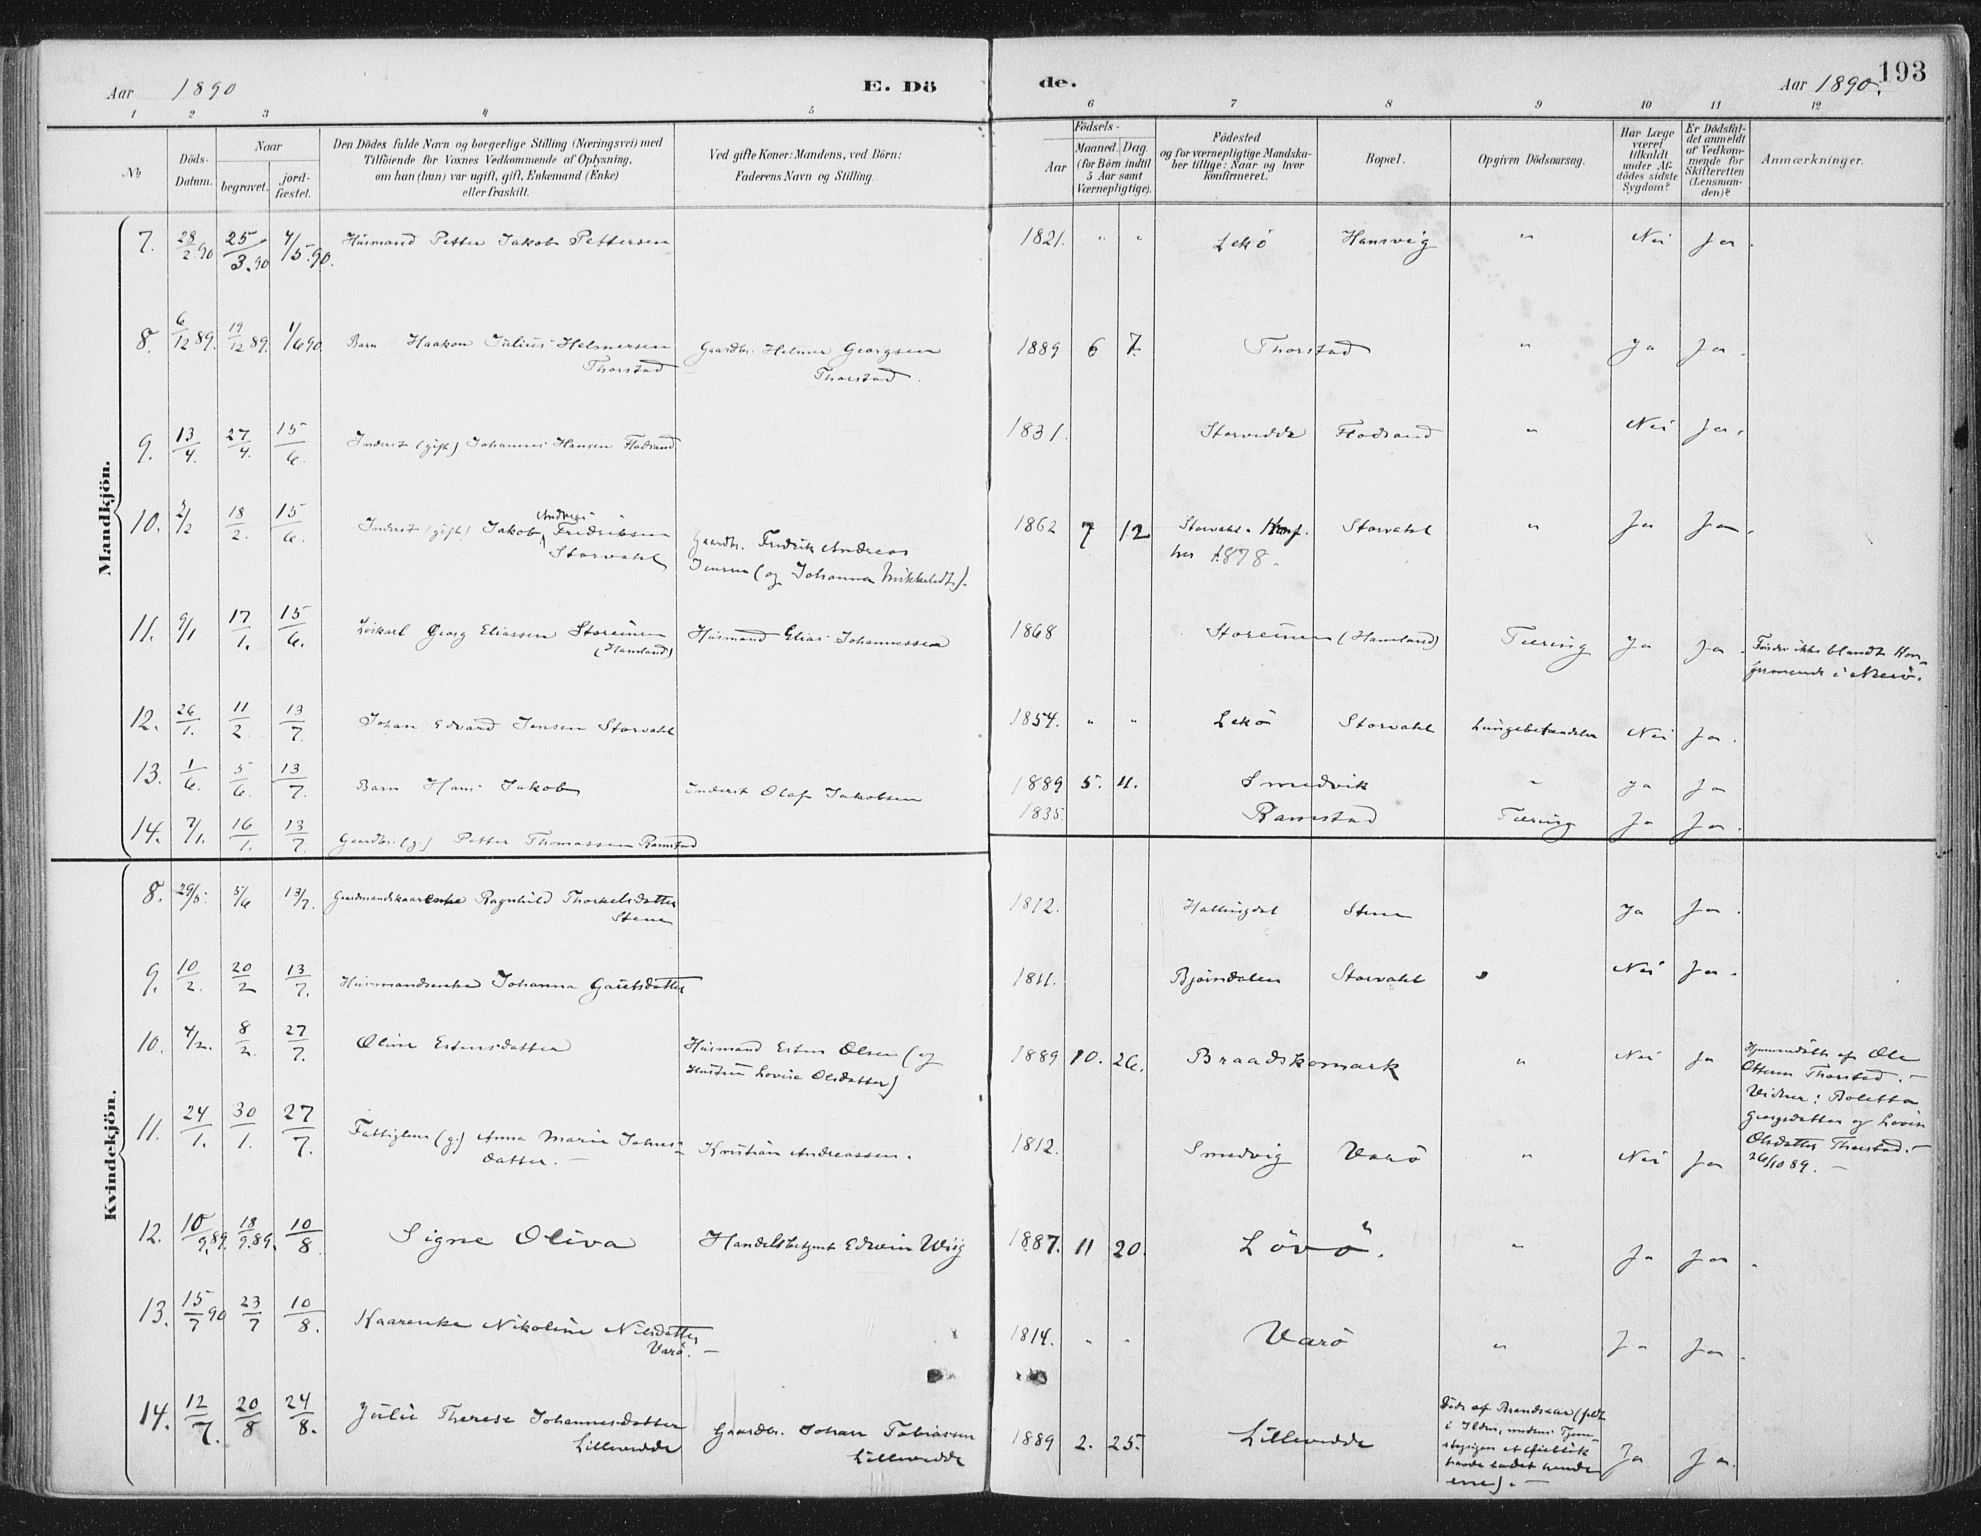 Aar 1890 E. Dö de. Aar 1890. 193
1 2 3 4 5 6 7 8 9 10 11 12
No
Döds-Datum.
Naar
begravet.
jord-fæstet.
Den Dödes fulde Navn og borgerlige Stilling (Næringsvei) med
Tilföiende for Voxnes Vedkommende af Oplysning,
om han (hun) var ugift, gift, Enkemand (Enke)
eller fraskilt.
Ved gifte Koner: Mandens, ved Börn:
Faderens Navn og Stilling.
Födsels-
Aar
Maaned. Dag.
(for Börn indtil
5 Aar samt
Værnepligtige).
Födested
og for værnepligtige Mandska-
ber tillige: Naar og hvor
konfirmeret.
Bopæl.
Opgiven Dödsaarsag.
Har Læge
været
tilkaldt
under Af-
dödes sidste
Sygdom?
Er Dödsfal-
det anmeldt
af Vedkom-
mende for
Skifteretten
(Lensman-
den)?
Anmærkninger.
Mandkjön.
7. 28/2 90 25/3 90 4/5 90. Husmand Petter Jakob Pettersen 1821. " " Lekö Hansvig " Nei Ja.
8. 6/12 89. 19/12 89. 1/6 90 Barn Haakon Julius Helmersen Gaardbr. Helmer Georgsen 1889 6 7. Thorstad " Ja Ja.
Thorstad Thorstad.
9. 13/4. 27/4. 15/6. Inderst (gift) Johannes Hansen Flodsand 1831. Storvedde Flodsand " Nei Ja.
10. 2/2 18/2. 15/6. Inderst (gift) Jakob Andreas Fredriksen Gaardbr. Fredrik Andreas 1862 7 12 Storvahl. Konf. Storvahl " Ja Ja.
Storvahl Jensen (og Johanna Mikkelsdtr). her 1878.
11. 9/1 17/1. 15/6. Löskarl Georg Eliassen Storeinen Husmand Elias Johannessen 1868 Storeinen (Hamland) Tæring Ja Ja. Findes ikke blandt Kon-
(Hamland) firmerede i Nærö.
12. 26/1. 11/2. 13/7. Johan Edvard Jensen Storvahl 1854. " " Lekö Storvahl Lungebetændelse Nei Ja.
13. 1/6. 5/6. 13/7. Barn Hans Jakob Inderst Olaf Jakobsen 1889 5. 4. Smedvik " Ja Ja
14. 7/1. 16/1. 13/7. Gaardbr. (g.) Petter Thomassen Ramstad 1835. Ramstad Tæring Ja Ja.
Kvindekjön.
8. 29/5. 5/6 13/7. Gaardmandskaarenke Ragnhild Thorkelsdatter 1812. Hallingdal Stene Ja Ja.
Stene
9. 10/2. 20/2 13/7. Husmandsenke Johanna 1811. Björndalen Storvahl Nei Ja.
10. 4/2. 8/2. 27/7. Oline Estensdatter Husmand Esten Olsen (og 1889 10. 26. Braadskomark " Nei Ja Hjemmedöbt af Ole
Hustru Lovise Olsdatter) Thorstad.
Vidner: Boletta
11. 24/1. 30/1. 27/7. Fattiglem (g.) Anna Marie Johns- Kristian Andreassen. 1812. Smedvig Varö " Nei Ja Georgsdatter og Lovise
datter. Olsdatter Thorstad.
26/10 89.
12. 10/9 89. 18/9 89. 10/8. Signe Oliva Handelsbetjent Edvin Wiig 1887. 11 20. Lövö. " Ja Ja.
13. 15/7 90 23/7 10/8. Kaarenke Nikoline Nilsdatter 1814. " " Varö " Ja Ja.
Varö.
14. 12/7. 20/8 24/8. Julie Therese Johannesdatter Gaardbr. Johan Tobiassen 1889 2. 25. Lillevedde Döde af Brandsaar (faldt Ja Ja.
Lillevedde Lillevedde i Ilden, medens Tjene-
stepigen et Öieblik
havde ladet hende
ene).